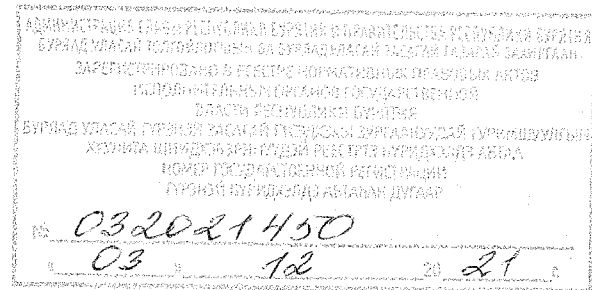 АДМИНИСТРАЦИЯ ГЛАВЫ РЕСПУБЛИКИ БУРЯТИЯ И ПРАВИТЕЛЬСТВА РЕСПУБЛИКИ БУРЯТИЯ
БУРЯАД УЛАСАЙ ТОЛГОЙЛОГШЫН БА БУРЯАД УЛАСАЙ ЗАСАГАЙ ГАЗАРАЙ ЗАХИРГААН
ЗАРЕГИСТРИРОВАНО В РЕЕСТРЕ НОРМАТИВНЫХ ПРАВОВЫХ АКТОВ
ИСПОЛНИТЕЛЬНЫХ ОРГАНОВ ГОСУДАРСТВЕННОЙ
ВЛАСТИ РЕСПУБЛИКИ БУРЯТИЯ
БУРЯАД УЛАСАЙ ГҮРЭНЭЙ ЗАСАГАЙ
НОМЕР ГОСУДАРСТВЕННОЙ РЕГИСТРАЦИИ
ГҮРЭНЭЙ БҮРИДХЭЛДЭ АБТАҺАН ДУГААР
№ 032021450
« 03 » 12 20 21 г.